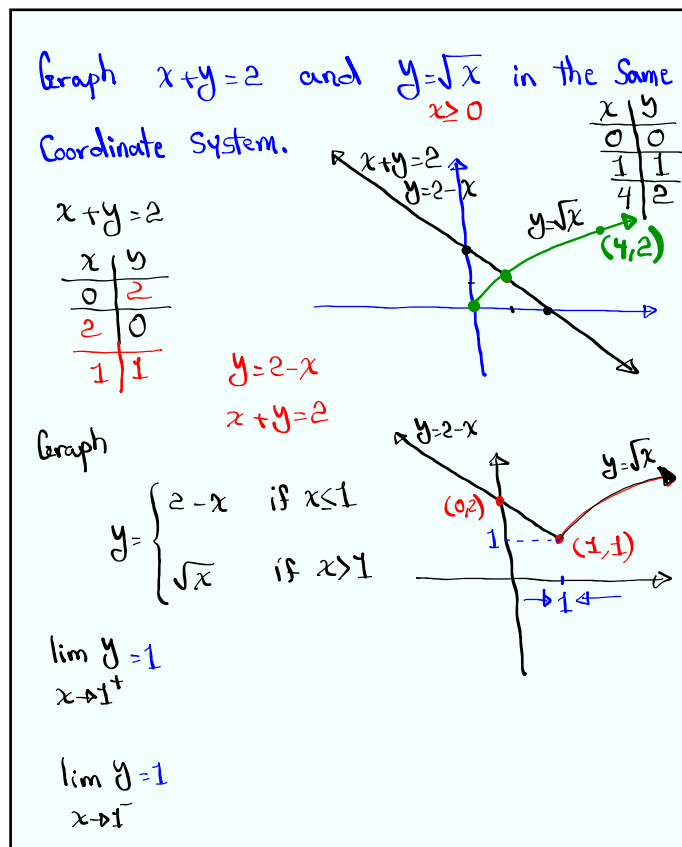 Graph x+y=2 and y=√x in the Same
x≥0
Coordinate System.
x | y
0 | 0
1 | 1
4 | 2
x+y=2
y=2-x
y=√x
(4,2)
x+y=2
x | y
0 | 2
2 | 0
1 | 1
y=2-x
x+y=2
Graph
y= { 2-x if x≤1
√x if x>1
y=2-x
y=√x
(0,2)
1
(1,1)
1
lim y =1
x→1⁺
lim y =1
x→1⁻